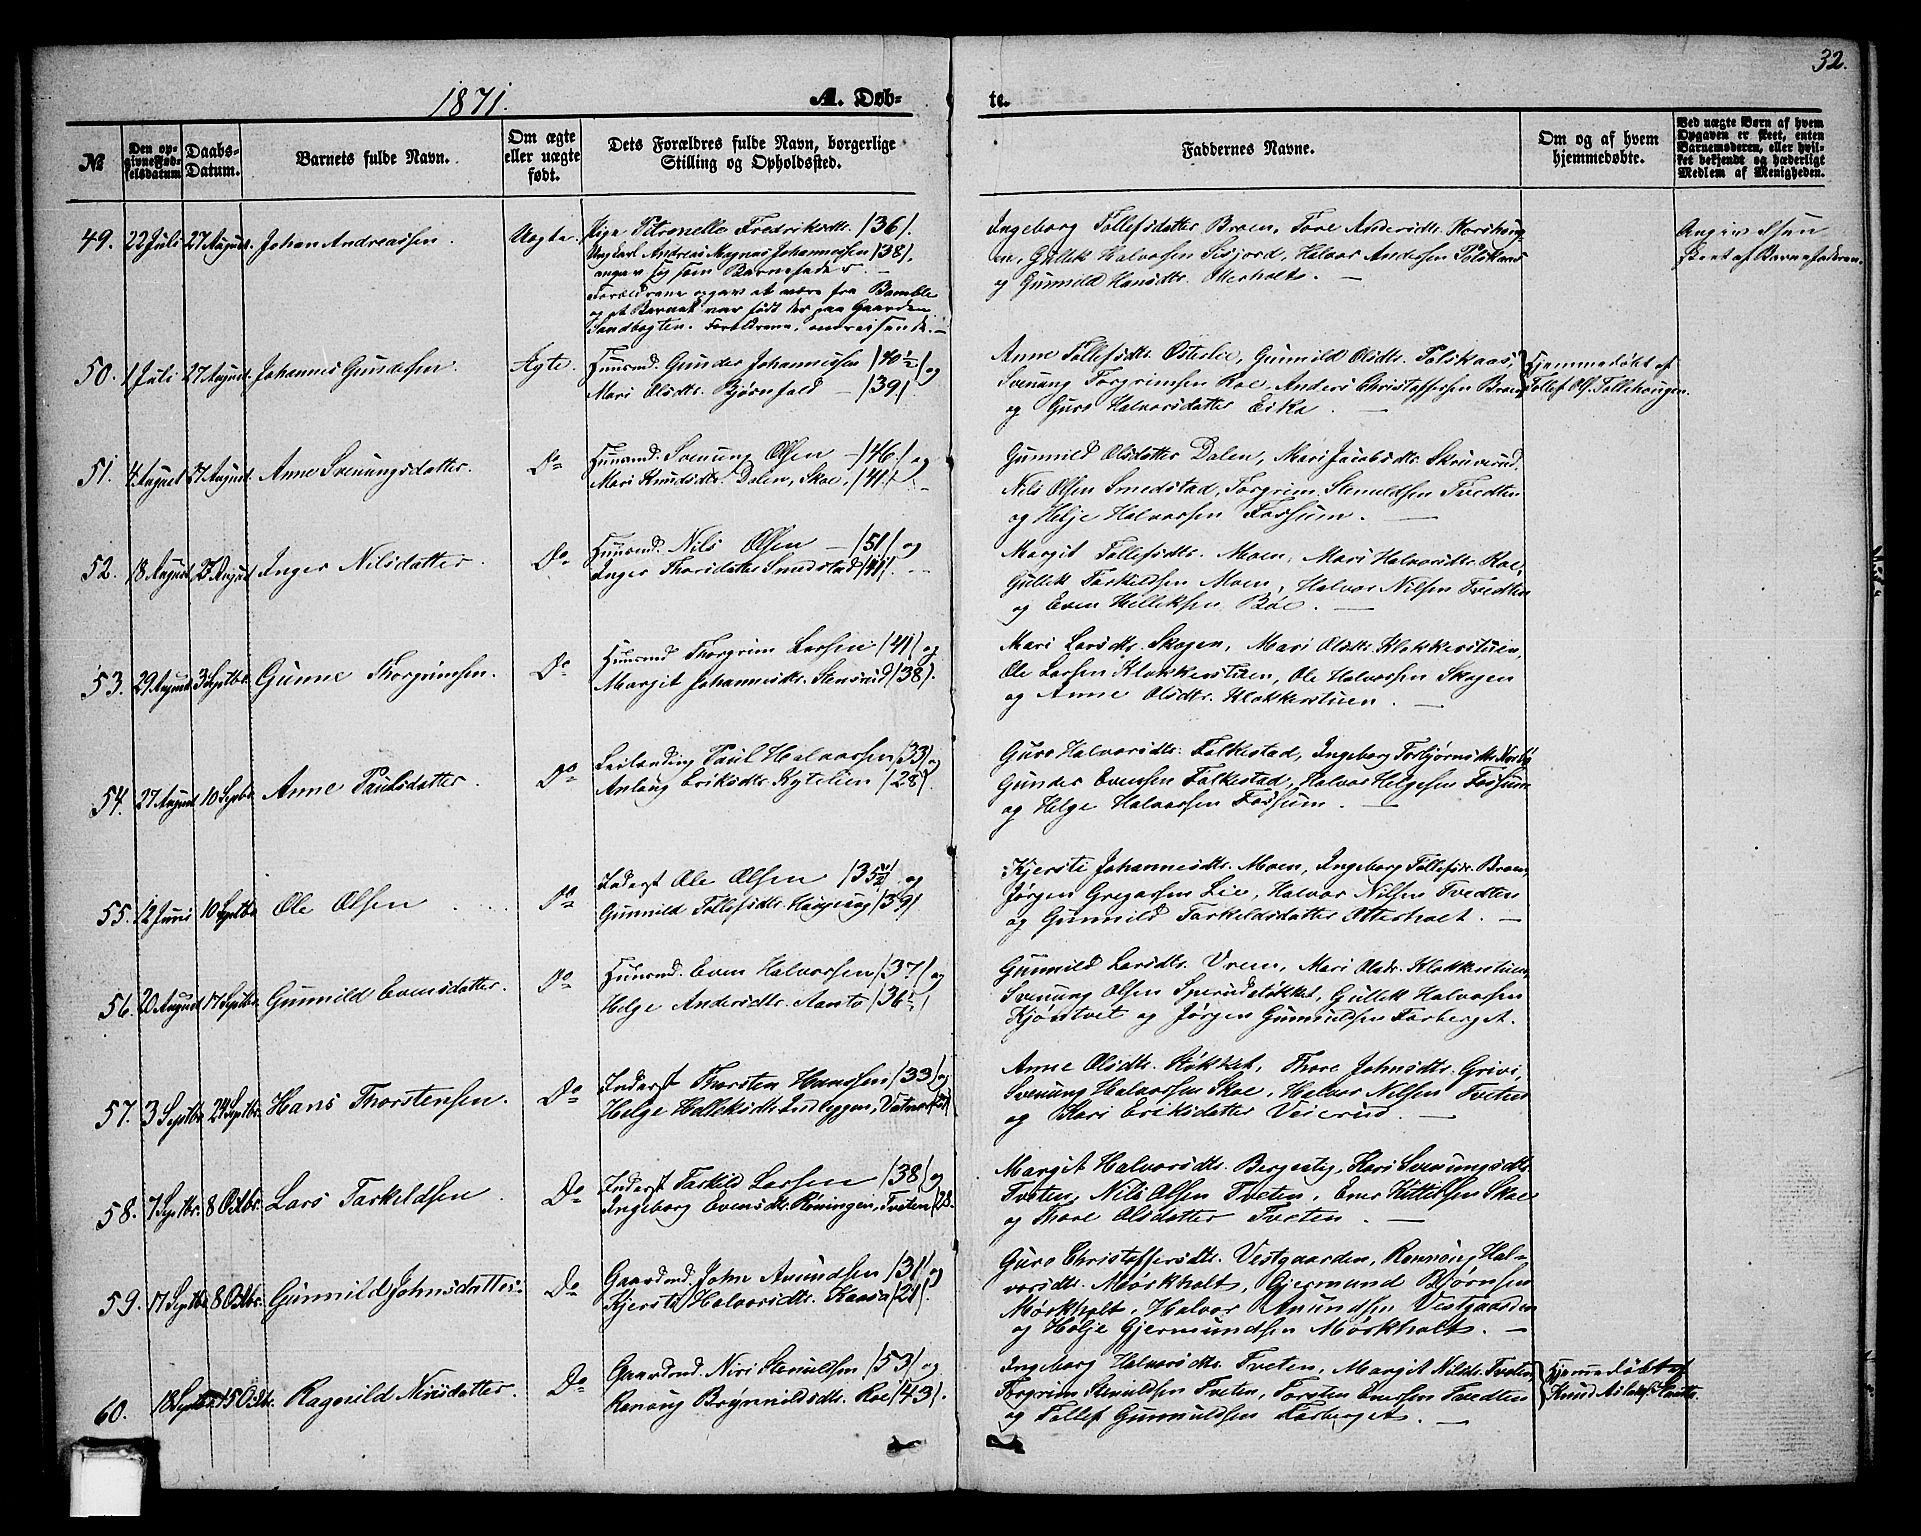 32.
1871.
A. Døb-
te.
№
Den op-
givne Fød-
selsdatum
Daabs-
Datum.
Barnets fulde Navn.
Om ægte
eller uægte
født.
Dets Forældres fulde Navn, borgerlige
Stilling og Opholdssted.
Faddernes Navne.
Om og af hvem
hjemmedøbte.
Ved uægte Børn af hvem
Opgaven er skeet, enten
Barnemoderen, eller hvil-
ket bekjendt og hæderligt
Medlem af Menigheden.
49. 22 Juli 27 August. Johan Andreassen. Uægte.
Pige Petronelle Fredriksdtr. /36/.
Ungkarl Andreas Magnus Johannessen /38/,
angav sig som Barnefader. —
Forældrene opgav at være fra Bamble
og at Barnet var født der paa Gaarden
Sandbogten. Forældrene, omreisende. —
Ingeborg Tollefsdatter Broen, Tore Andersdtr.
Gullik Halvorsen Sisjord, Halvor Andersen
og Gunnild Hansdtr. Otterholt. —
skeet af Barnefaderen.
50. 1 Juli 27 August. Johannes Gundersen. Ægte.
Huusmd. Gunder Johannessen /40½/ og
Mari Olsdtr. Bjørnfald — /39/
Anne Tollefsdtr. Osterlie, Gunnild Olsdtr. Folskaas,
Svenung Torgrimsen Roe, Anders Christoffersen Broen
og Guro Halvorsdatter Eika. —
Hjemmedøbt af
Tollef Ols. Follehougen.
51. 4 August 27 August. Anne Svenungsdatter. Do
Huusmd. Svenung Olsen — /46/ og
Mari Knudsdtr. Dalen, Skoe, /41/ —
Gunnild Olsdatter Dalen, Mari Jacobsdtr. Skruverud.
Nils Olsen Smedstad, Torgrim Stenuldsen Tvedten
og Helje Halvorsen Fossum. —
52. 18 August 27 August Inger Nilsdatter. Do
Huusmd. Nils Olsen — /51/ og
Inger Thorsdatter Smedstad /41/. —
Margit Tollefsdtr. Moen, Mari Halvorsdtr. Roe,
Gullik Tarkeldsen Moen, Halvor Nilsen Tvedten
og Even Helleksen Bøe. —
53. 29 August 3 Septbr. Gunne Thorgrimsen. Do
Huusmd Thorgrim Larsen /41/ og
Margit Johannesdtr. Stensrud /38/.
Mari Larsdtr. Skogen, Mari Olsdtr. Klokkerstuen,
Ole Larsen Klokkerstuen, Ole Halvorsen Skogen
og Anne Olsdtr. Klokkerstuen. —
54. 27 August 10 Septbr Anne Paulsdatter. Do
Leilænding Paul Halvorsen /33/ og
Anlaug Eriksdtr. Kytelien /28/.
Guro Halvorsdtr. Folkestad, Ingeborg Torbjørnsdtr.
Gunder Evensen Folkestad, Halvor Helgesen Fossum
og Helge Halvorsen Fossum. —
55. 12 Juni 10 Septbr Ole Olsen Do
Inderst Ole Olsen /35½/ og
Gunnild Tollefsdtr. /39/
Kjersti Johannesdtr. Moen, Ingeborg Tollefsdr. Broen,
Jørgen Gregarsen Lie, Halvor Nilsen Tvedten
og Gunnild Tarkeldsdatter Otterholt. —
56. 20 August 17 Septbr. Gunnild Evensdatter. Do
Huusmd. Even Halvorsen /37/ og
Helge Andersdtr. Aasto /36½/
Gunnild Larsdtr. Vreim, Mari Olsdr. Klokkerstuen,
Svenung Olsen Sperudsløkket, Gullik Halvorsen
Kjøntvet og Jørgen Gunnuldsen Farberget.
57. 3 Septbr 24 Septbr. Hans Thorstensen. Do
Inderst Thorsten Hansen /33/ og
Helge Helleksdtr.
Anne Olsdtr. Støkket, Thore Johnsdtr. Grivi,
Svenung Halvorsen Skoe, Halvor Nilsen Tveten
og Kari Eriksdatter Veierud. —
58. 7 Septbr. 8 Octbr. Lars Tarkeldsen. Do
Inderst Tarkild Larsen /38/ og
Ingeborg Evensdtr. Røningen, Tveten /28.
Margit Halvorsdtr. Bergestig, Kari Svenungsdtr.
Tveten, Nils Olsen Tveten, Even Kittilsen Skoe
og Thore Olsdatter Tveten. —
59. 17 Septbr 8 Octbr. Gunnild Johnsdatter. Do
Gaardmd. John Amundsen /31/ og
Kjersti Halvorsdtr. Kaasa /21/.
Guro Christoffersdtr. Vestgaarden, Rannoug Hal-
vorsdtr. Mørkholt, Gjermund Bjørnsen
Mørkholt, Halvor Anundsen Vestgaarden
og Helje Gjermundsen Mørkholt. —
60. 18 Septbr 15 Octbr. Ragnild Nirisdatter. Do
Gaardmd. Niri Stenuldsen /53/ og
Ranoug Brynnildsdtr. Roe /43/.
Ingeborg Halvorsdtr. Tveten, Margit Nilsdtr. Tveten,
Torgrim Stenuldsen Tveten, Torsten Evensen Tvedten
og Tollef Gunnuldsen Farberget. —
Hjemmedøbt af
Knud